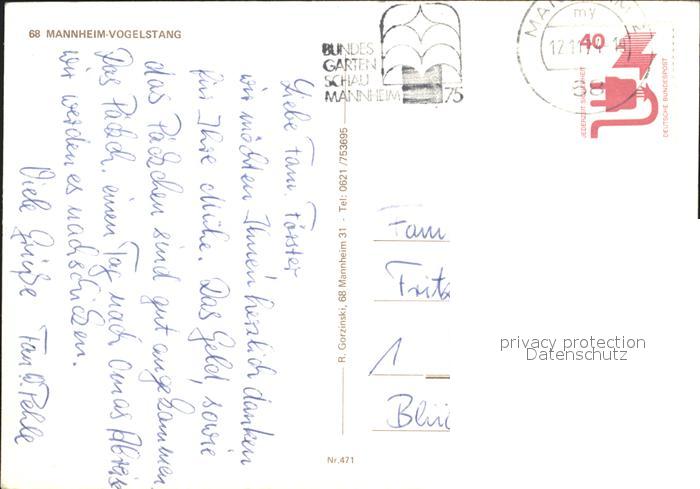 68 MANNHEIM-VOGELSTANG
Liebe Fam. Förster
wir möchten Ihnen herzlich danken
für Ihre Mühe. Das Geld, sowie
das Päckchen sind gut angekommen
Das Päckch. einen Tag nach Omas Abreise
wir werden es nachschicken.
Viele Grüße Fam.
R. Gorzinski, 68 Mannheim 31 - Tel: 0621/753695
Nr. 471
BUNDES
GARTEN
SCHAU
MANNHEIM 75
MANNHEIM
my
12.11.
68
40
JEDERZEIT SICHERHEIT
DEUTSCHE BUNDESPOST
Fam
Fritz
1
privacy protection
Datenschutz